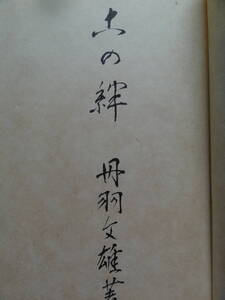 この絆 丹羽文雄著